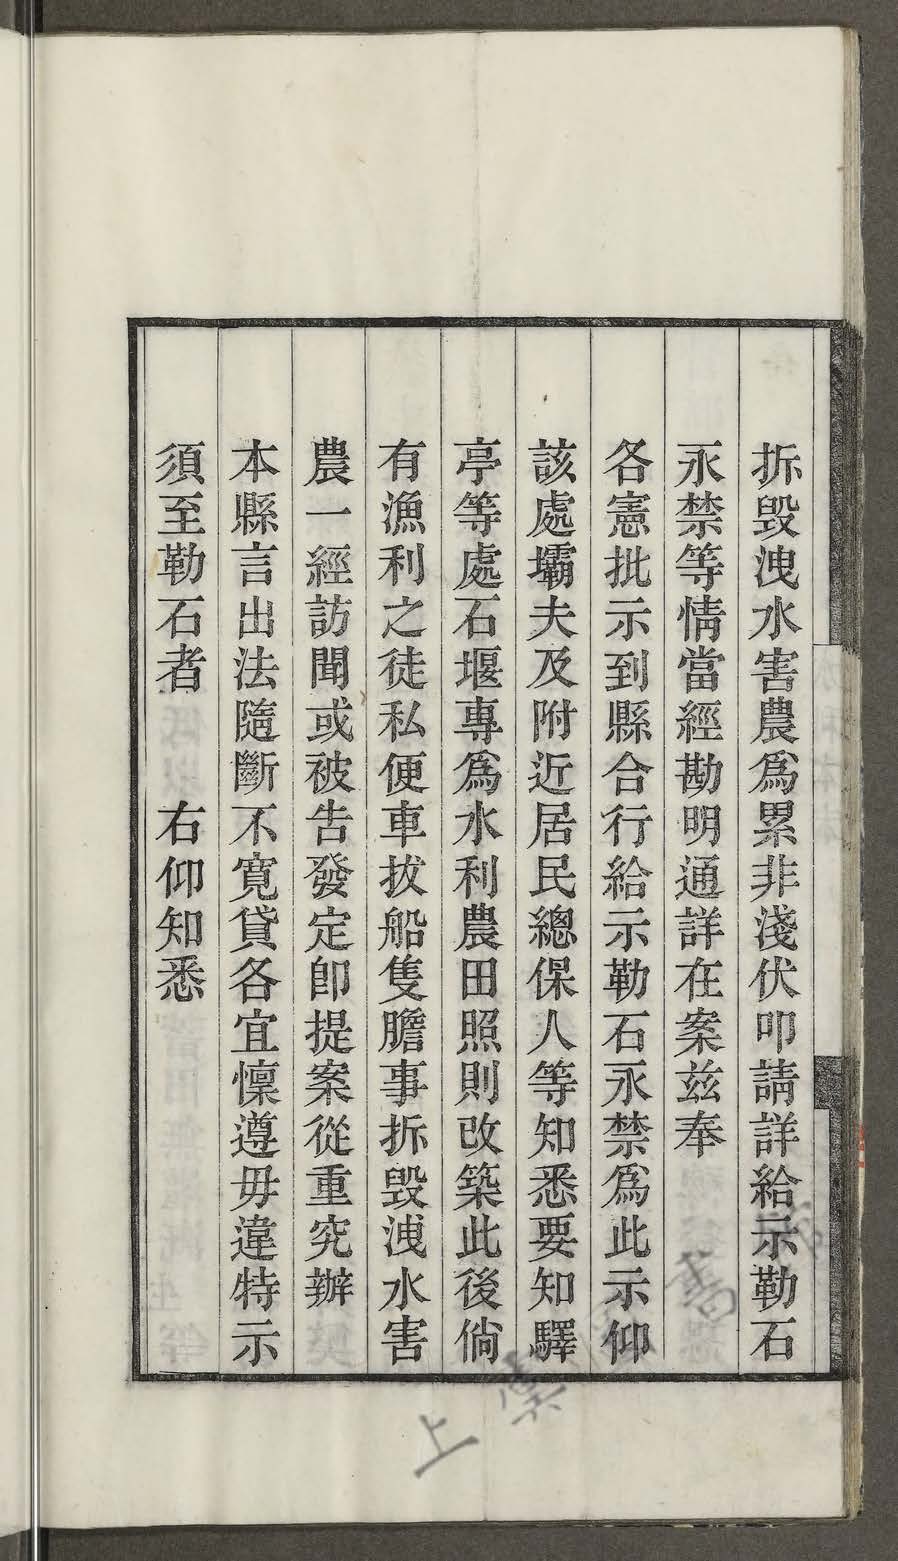 拆毀洩水害農爲累非淺伏叩請詳給示勒石
永禁等情當經勘明通詳在案兹奉
各憲批示到縣合行給示勒石永禁爲此示仰
該處壩夫及附近居民總保人等知悉要知驛
亭等處石堰專爲水利農田照則改築此後倘
有漁利之徒私便車拔船隻膽事拆毀洩水害
農一經訪聞或被告發定卽提案從重究辦
本縣言出法隨斷不寬貸各宜懍遵毋違特示
須至勒石者　　右仰知悉